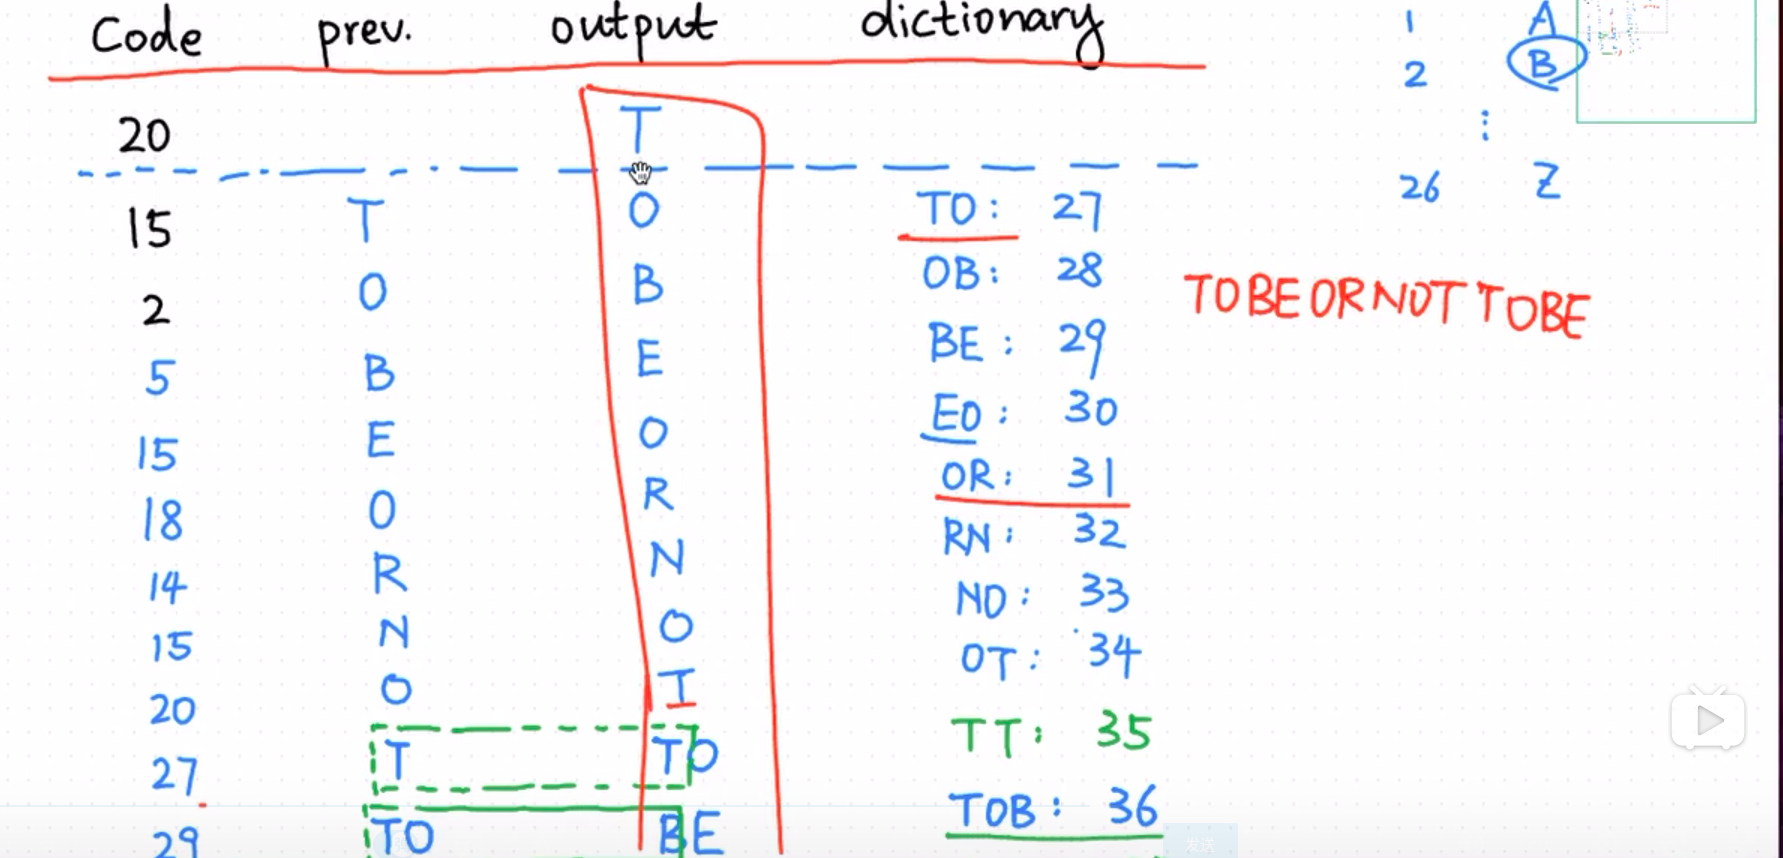 Code prev. output dictionary
1 A
2 B
⋮
26 Z
20 T
15 T O TO: 27
2 O B OB: 28
5 B E BE: 29
15 E O EO: 30
18 O R OR: 31
14 R N RN: 32
15 N O NO: 33
20 O T OT: 34
27 T TO TT: 35
29 TO BE TOB: 36
TOBEORNOTTOBE
发送